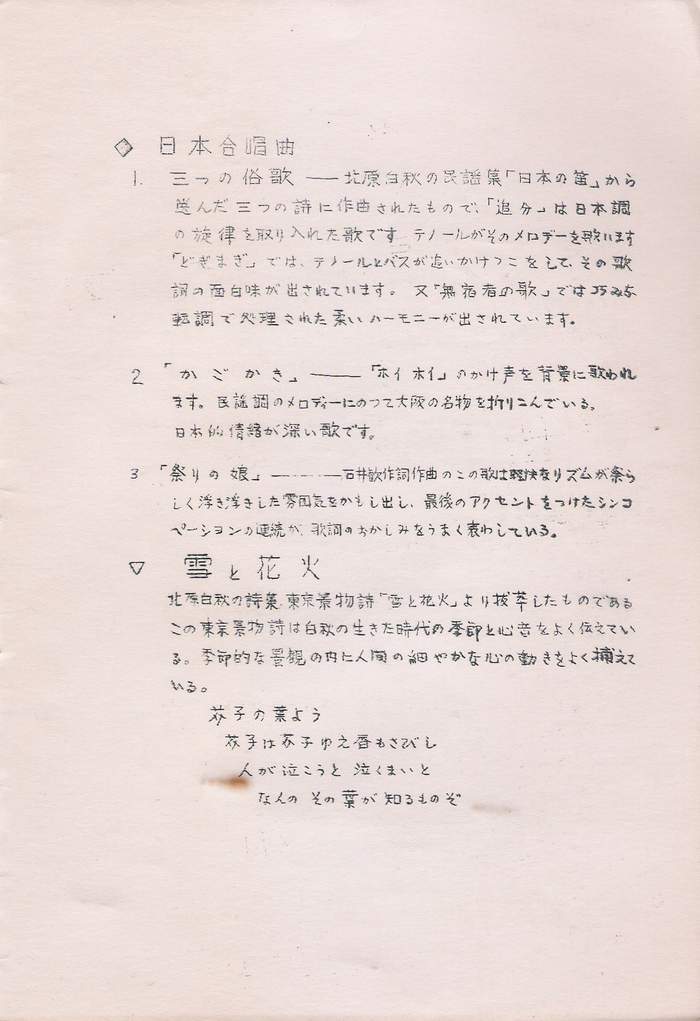 ◇ 日本合唱曲
1. 三つの俗歌 ── 北原白秋の民謡集「日本の笛」から
選んだ三つの詩に作曲されたもので、「追分」は日本調
の旋律を取り入れた歌です テノールがそのメロデーを歌います
「どぎまぎ」では、テノールとバスが追いかけっこをして、その歌
詞の面白味が出されています。 又「無宿者の歌」では巧みな
転調で処理された柔いハーモニーが出されています。
2 「かごかき」 ── 「ホイホイ」のかけ声を背景に歌われ
ます。民謡調のメロディーにのって大阪の名物を折りこんでいる。
日本的情緒が深い歌です。
3 「祭りの娘」 ── 石井歓作詞作曲のこの歌は軽快なリズムが祭ら
しく浮き浮きした雰囲気をかもし出し、最後のアクセントをつけたシンコ
ペーションの連続が、歌詞のおかしみをうまく表わしている。
▽ 雪と花火
北原白秋の詩集 東京景物詩「雪と花火」より抜萃したものである
この東京景物詩は白秋の生きた時代の季節と心音をよく伝えてい
る。季節的な景観の内に人間の細やかな心の動きをよく捕えて
いる。
芥子の葉よう
芥子は芥子ゆえ香もさびし
人が泣こうと 泣くまいと
なんの その葉が 知るものぞ